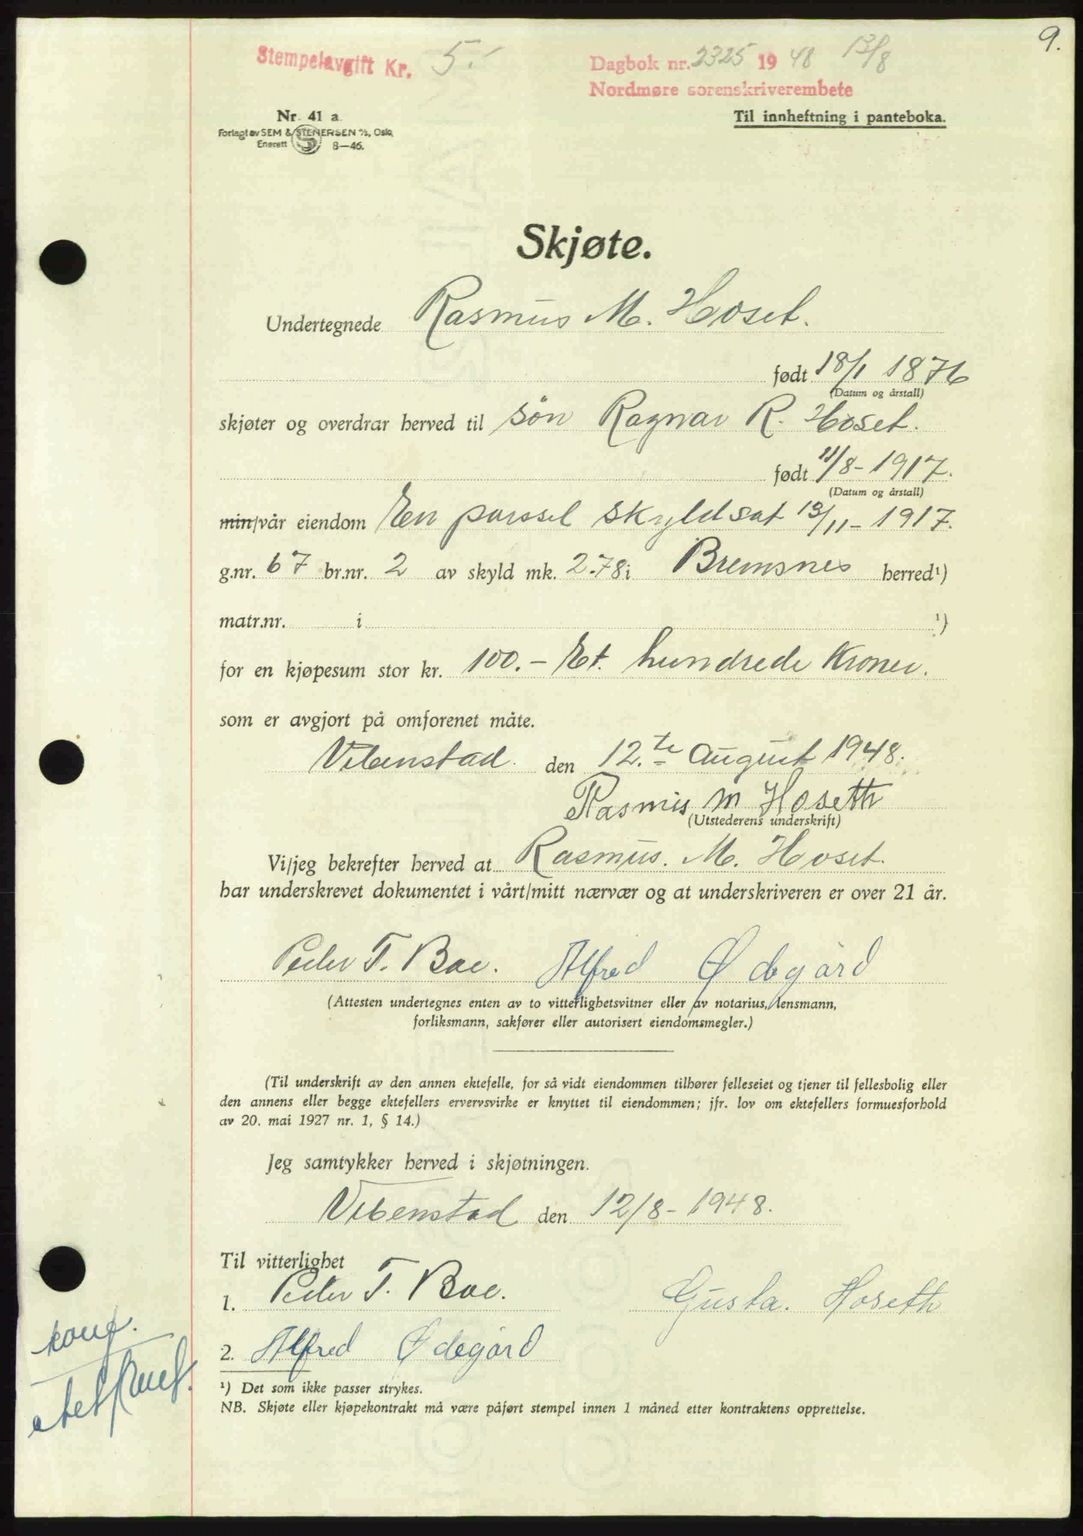 9.
Stempelavgift Kr. 5.-
Dagbok nr. 2325 19 48 13/8
Nordmøre sorenskriverembete
Nr. 41 a
Til innheftning i panteboka.
Forlagt av SEM & STENERSEN A/S, Oslo
Enerett S 8—46.
Skjøte.
Undertegnede Rasmus M. Hoset.
født 18/1 1876
(Datum og årstall)
skjøter og overdrar herved til søn Ragnar R. Hoset.
født 11/8-1917.
(Datum og årstall)
min/vår eiendom En parsel skyldsat 13/11-1917.
g.nr. 67 br.nr. 2 av skyld mk. 2.78 i Bremsnes herred¹)
matr.nr. i ¹)
for en kjøpesum stor kr. 100.- Et. hundrede Kroner.
som er avgjort på omforenet måte.
Vebenstad. den 12.te August 1948.
Rasmus M Hoseth
(Utstederens underskrift)
Vi/jeg bekrefter herved at Rasmus. M. Hoset.
har underskrevet dokumentet i vårt/mitt nærvær og at underskriveren er over 21 år.
Peder T. Boe. Alfred Ødegård
(Attesten undertegnes enten av to vitterlighetsvitner eller av notarius, lensmann,
forliksmann, sakfører eller autorisert eiendomsmegler.)
(Til underskrift av den annen ektefelle, for så vidt eiendommen tilhører felleseiet og tjener til fellesbolig eller
den annens eller begge ektefellers ervervsvirke er knyttet til eiendommen; jfr. lov om ektefellers formuesforhold
av 20. mai 1927 nr. 1, § 14.)
Jeg samtykker herved i skjøtningen.
Vebenstad den 12/8-1948.
Til vitterlighet
1. Peder T. Boe. Gusta. Hoseth
2. Alfred Ødegård
konf.
¹) Det som ikke passer strykes.
NB. Skjøte eller kjøpekontrakt må være påført stempel innen 1 måned etter kontraktens opprettelse.